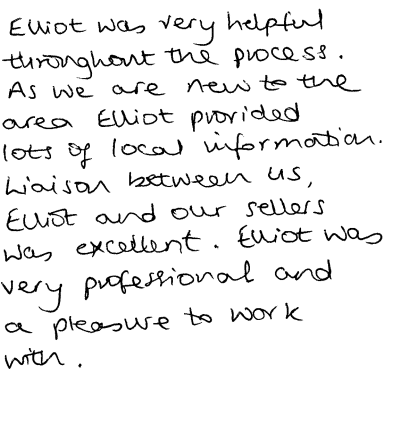 Elliot was very helpful
throughout the process.
As we are new to the
area Elliot provided
lots of local information.
Liaison between us,
Elliot and our sellers
was excellent. Elliot was
very professional and
a pleasure to work
with.